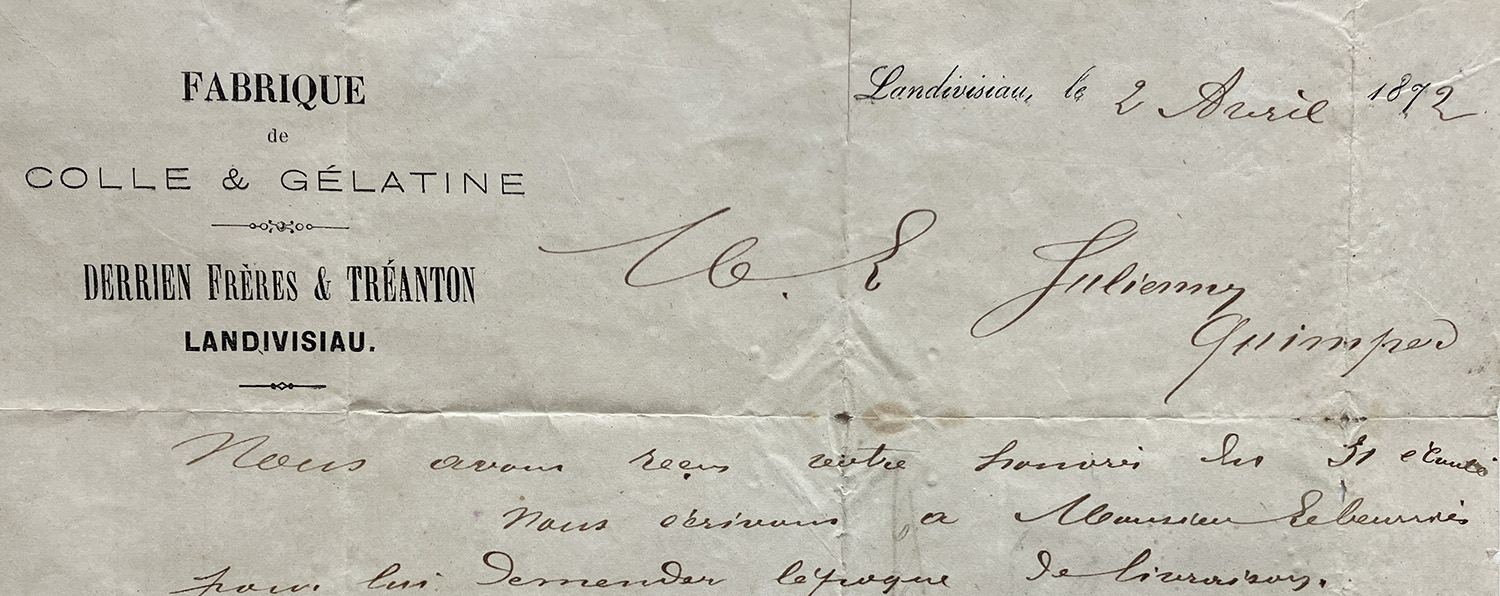 FABRIQUE
de
COLLE & GÉLATINE
DERRIEN FRÈRES & TRÉANTON
LANDIVISIAU.
Landivisiau, le 2 Avril 1892
M. E Julienny
Quimper
Nous avons reçu votre honoré du 31 écoulé
Nous écrivons a Monsieur
pour lui demender l'époque de livraison.